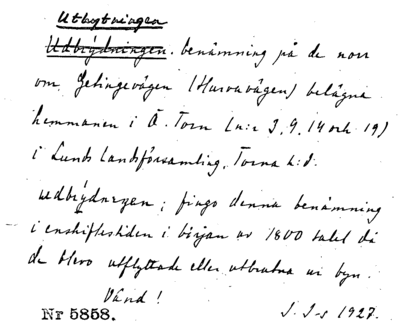 Utbytningen
Udbrydningen. benämning på de norr
om Getingevägen (Hurvavägen) belägna
hemmanen i Ö. Torn (n:r 3, 9, 14 och 19)
i Lunds landsförsamling, Torna h:d.
Udbrydningen; fingo denna benämning
i enskiftestiden i början av 1800 talet då
de blevo utflyttade eller utbrutna ur byn.
Vänd!
Nr 5858. J. J-s 1927.